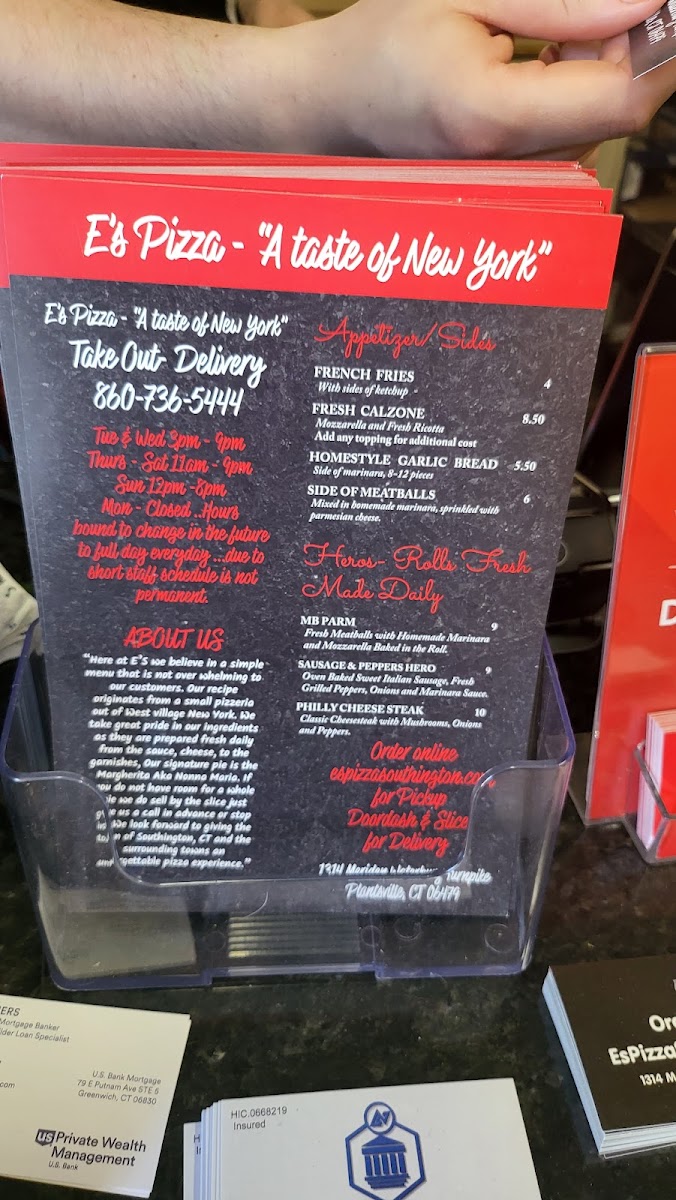 E's Pizza - "A taste of New York"
E's Pizza - "A taste of New York"
Take Out- Delivery
860-736-5444
Tue & Wed 3pm - 9pm
Thurs - Sat 11am - 9pm
Sun 12pm -8pm
Mon - Closed ..Hours
bound to change in the future
to full day everyday ...due to
short staff schedule is not
permanent.
ABOUT US
"Here at E'S we believe in a simple
menu that is not over whelming to
our customers. Our recipe
originates from a small pizzeria
out of West village New York. We
take great pride in our ingredients
as they are prepared fresh daily
from the sauce, cheese, to the
garnishes, Our signature pie is the
Margherita Aka Nonna Maria. If
you do not have room for a whole
we do sell by the slice just
give us a call in advance or stop
We look forward to giving the
of Southington, CT and the
surrounding towns an
pizza experience."
Appetizer/Sides
FRENCH FRIES 4
With sides of ketchup -
FRESH CALZONE 8.50
Mozzarella and Fresh Ricotta
Add any topping for additional cost
HOMESTYLE GARLIC BREAD 5.50
Side of marinara, 8-12 pieces
SIDE OF MEATBALLS 6
Mixed in homemade marinara, sprinkled with
parmesian cheese.
Heros- Rolls Fresh
Made Daily
MB PARM 9
Fresh Meatballs with Homemade Marinara
and Mozzarella Baked in the Roll.
SAUSAGE & PEPPERS HERO 9
Oven Baked Sweet Italian Sausage, Fresh
Grilled Peppers, Onions and Marinara Sauce.
PHILLY CHEESE STEAK 10
Classic Cheesesteak with Mushrooms, Onions
and Peppers.
Order online
espizzasouthington.com
for Pickup
Doordash & Slice
for Delivery
1314 Meriden Waterbury Turnpike
Plantsville, CT 06479
ERS
Mortgage Banker
der Loan Specialist
.com
U.S. Bank Mortgage
79 E Putnam Ave STE 5
Greenwich, CT 06830
us Private Wealth
Management
U.S. Bank
HIC.0668219
Insured
Ore
EsPizza
1314 M
D